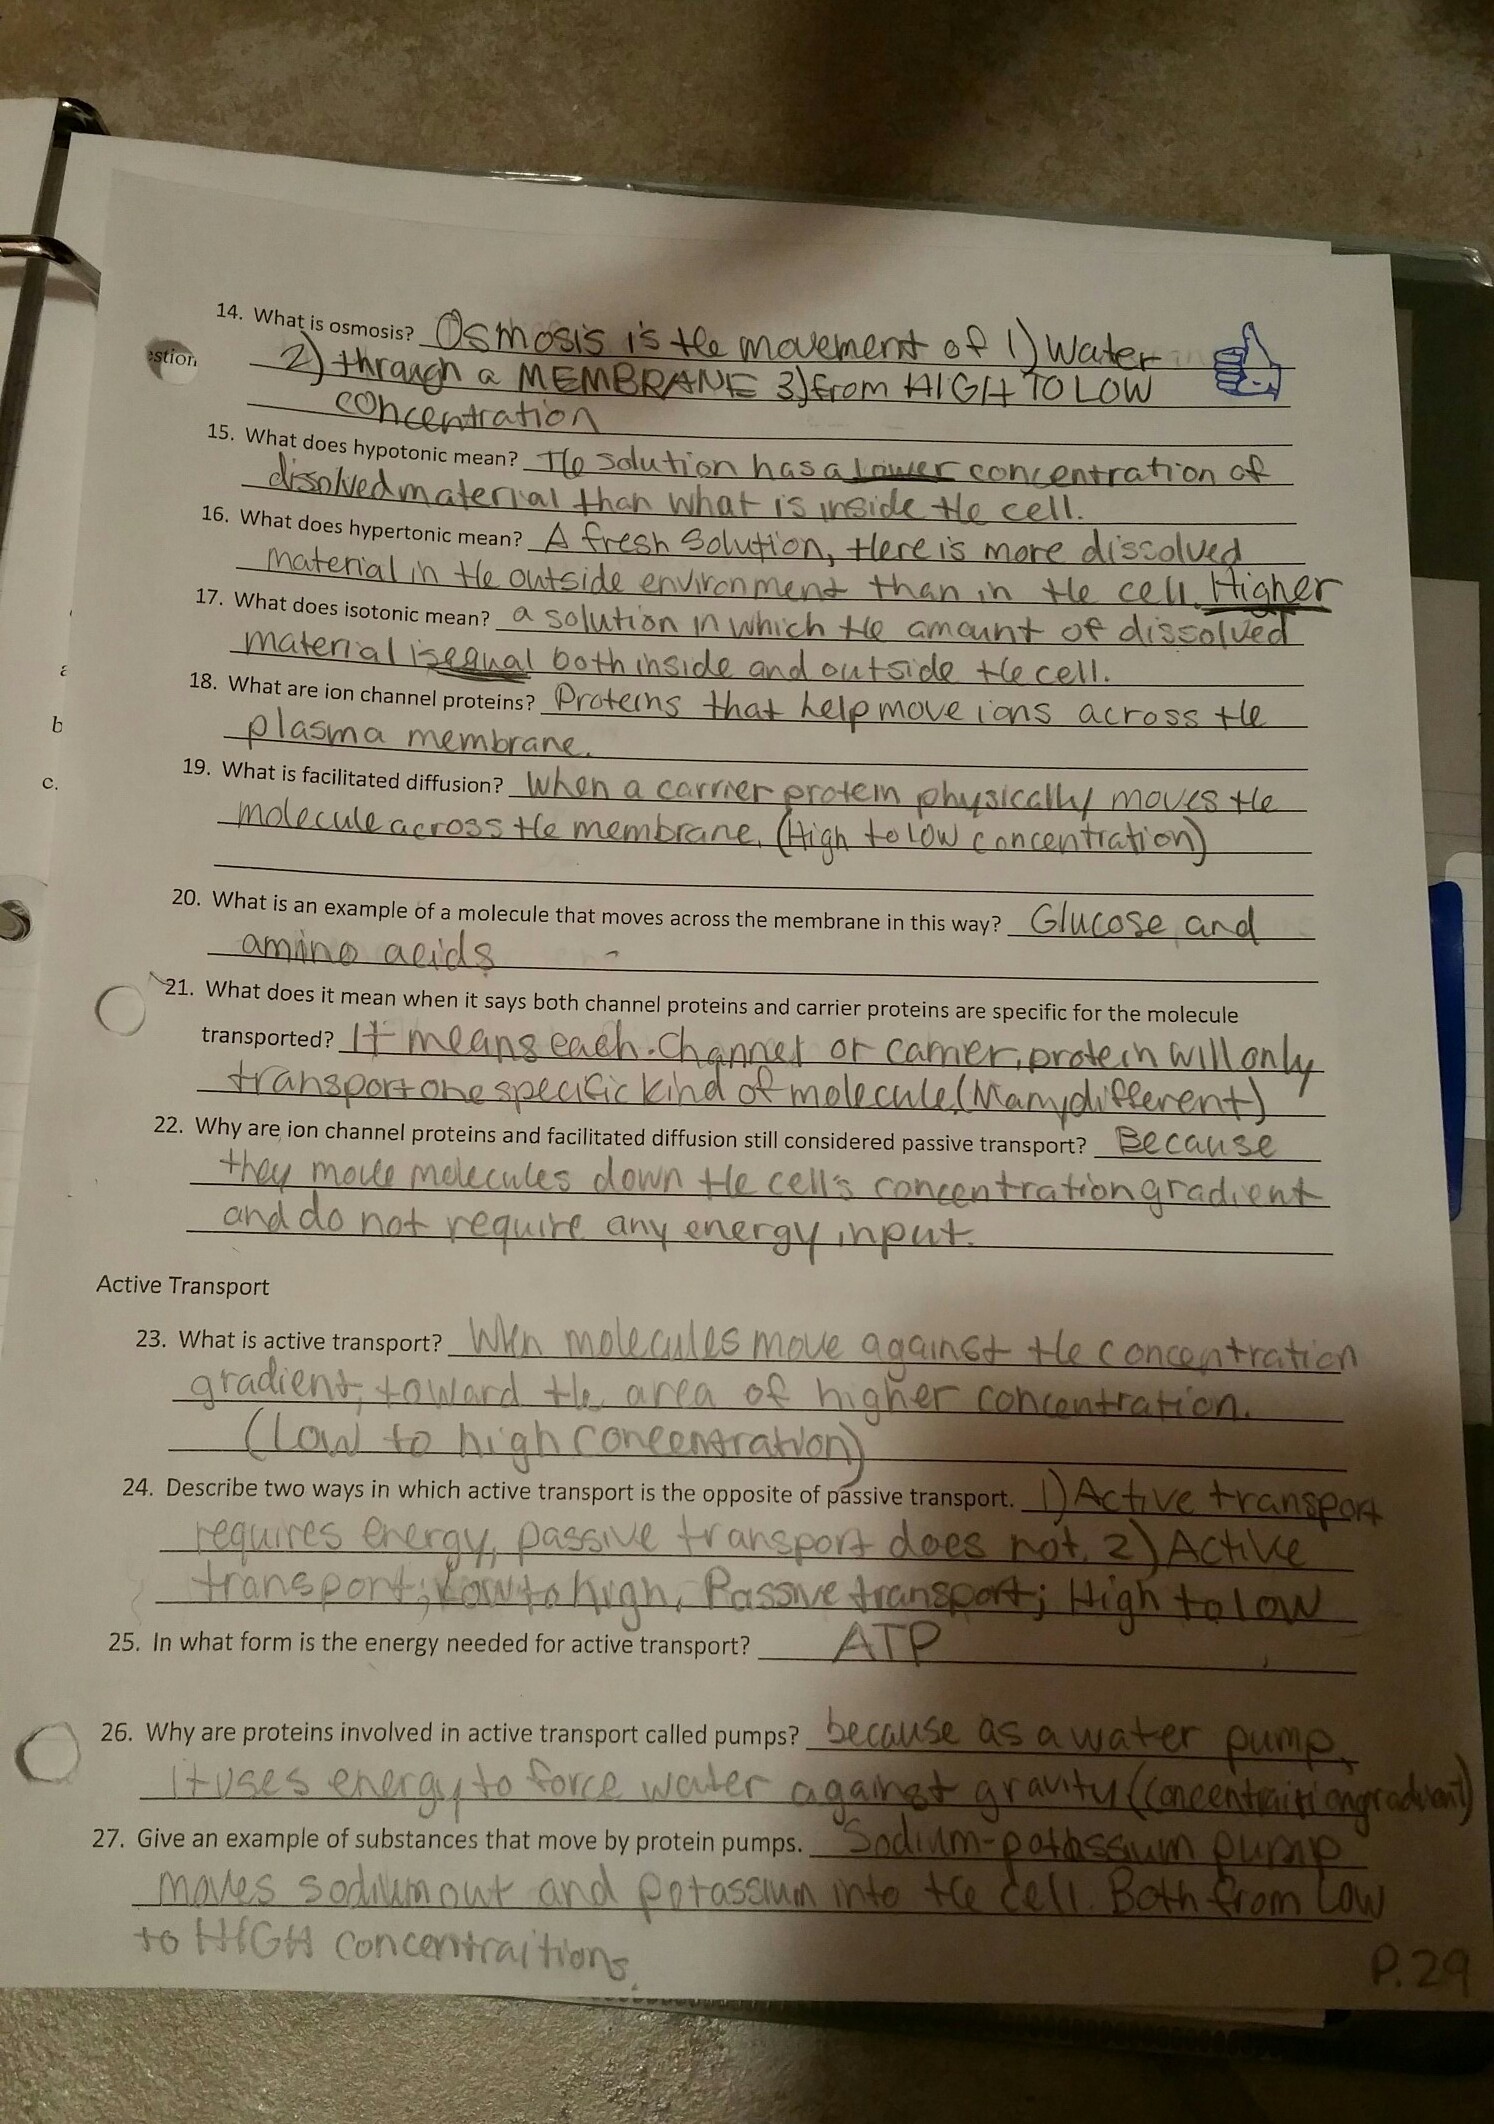 14. What is osmosis? Osmosis is the movement of 1) Water
estion
2) through a MEMBRANE 3) from HIGH TO LOW
concentration
15. What does hypotonic mean? The solution has a lower concentration of
dissolved material than what is inside the cell.
16. What does hypertonic mean? A fresh solution, there is more dissolved
material in the outside environment than in the cell. Higher
17. What does isotonic mean? a solution in which the amount of dissolved
material is equal both inside and outside the cell.
18. What are ion channel proteins? Proteins that help move ions across the
plasma membrane.
b
19. What is facilitated diffusion? When a carrier protein physically moves the
c.
molecule across the membrane. (High to low concentration)
20. What is an example of a molecule that moves across the membrane in this way? Glucose and
amino acids
21. What does it mean when it says both channel proteins and carrier proteins are specific for the molecule
transported? It means each channel or carrier protein will only
transport one specific kind of molecule. (Many different)
22. Why are ion channel proteins and facilitated diffusion still considered passive transport? Because
they move molecules down the cell's concentration gradient
and do not require any energy input.
Active Transport
23. What is active transport? When molecules move against the concentration
gradient; toward the area of higher concentration.
(Low to high concentration)
24. Describe two ways in which active transport is the opposite of passive transport. 1) Active transport
requires energy, passive transport does not. 2) Active
transport; Low to high, Passive transport; High to low
25. In what form is the energy needed for active transport? ATP
26. Why are proteins involved in active transport called pumps? because as a water pump,
it uses energy to force water against gravity (concentraition gradient)
27. Give an example of substances that move by protein pumps. Sodium-potassium pump
moves sodium out and potassium into the cell. Both from Low
to HIGH concentraitions.
P.29